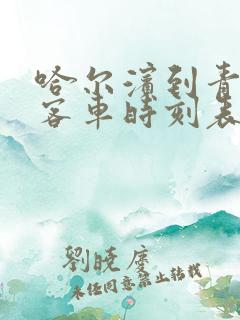 哈尔滨到青
客车时刻表
劉曉慶
未经同意禁止转载